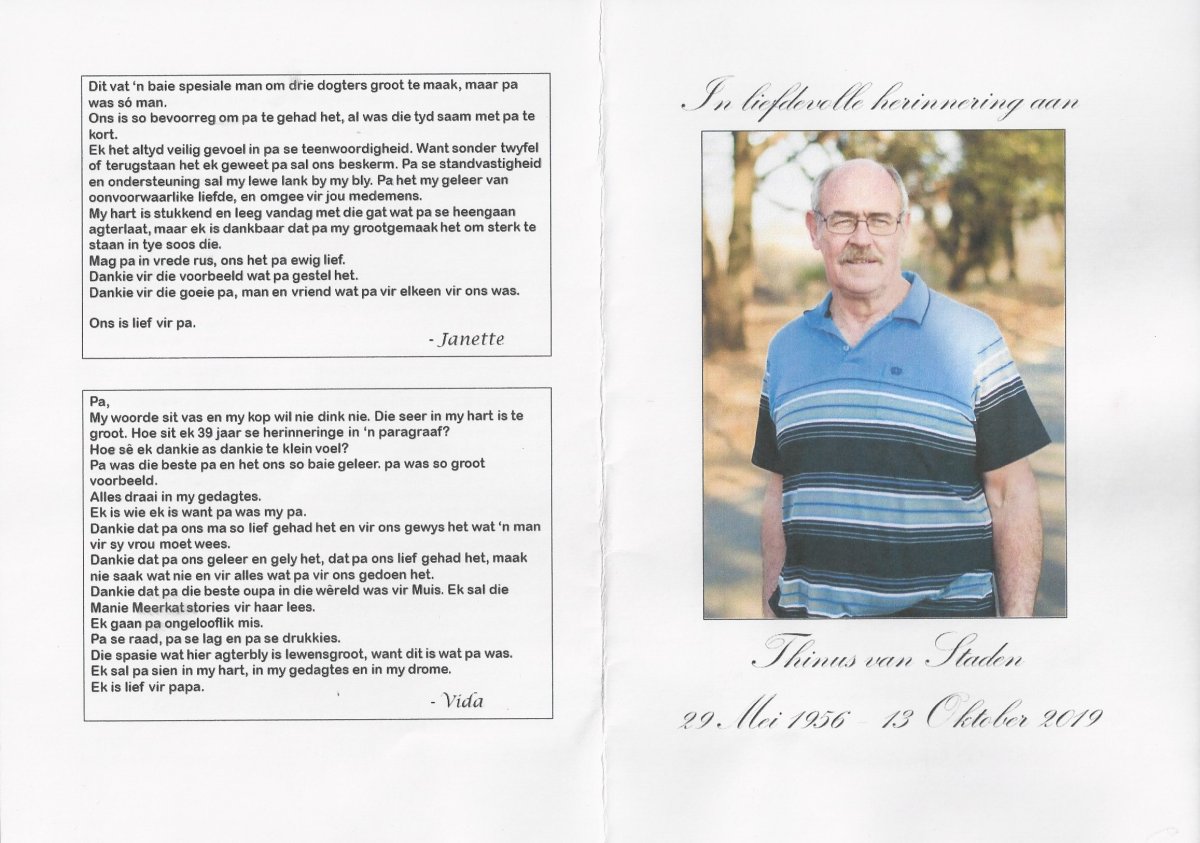 Dit vat ‘n baie spesiale man om drie dogters groot te maak, maar pa
was só man.
Ons is so bevoorreg om pa te gehad het, al was die tyd saam met pa te
kort.
Ek het altyd veilig gevoel in pa se teenwoordigheid. Want sonder twyfel
of terugstaan het ek geweet pa sal ons beskerm. Pa se standvastigheid
en ondersteuning sal my lewe lank by my bly. Pa het my geleer van
oonvoorwaarlike liefde, en omgee vir jou medemens.
My hart is stukkend en leeg vandag met die gat wat pa se heengaan
agterlaat, maar ek is dankbaar dat pa my grootgemaak het om sterk te
staan in tye soos die.
Mag pa in vrede rus, ons het pa ewig lief.
Dankie vir die voorbeeld wat pa gestel het.
Dankie vir die goeie pa, man en vriend wat pa vir elkeen vir ons was.
Ons is lief vir pa.
- Janette
Pa,
My woorde sit vas en my kop wil nie dink nie. Die seer in my hart is te
groot. Hoe sit ek 39 jaar se herinneringe in ‘n paragraaf?
Hoe sê ek dankie as dankie te klein voel?
Pa was die beste pa en het ons so baie geleer. pa was so groot
voorbeeld.
Alles draai in my gedagtes.
Ek is wie ek is want pa was my pa.
Dankie dat pa ons ma so lief gehad het en vir ons gewys het wat ‘n man
vir sy vrou moet wees.
Dankie dat pa ons geleer en gely het, dat pa ons lief gehad het, maak
nie saak wat nie en vir alles wat pa vir ons gedoen het.
Dankie dat pa die beste oupa in die wêreld was vir Muis. Ek sal die
Manie Meerkat stories vir haar lees.
Ek gaan pa ongelooflik mis.
Pa se raad, pa se lag en pa se drukkies.
Die spasie wat hier agterbly is lewensgroot, want dit is wat pa was.
Ek sal pa sien in my hart, in my gedagtes en in my drome.
Ek is lief vir papa.
- Vida
In liefdevolle herinnering aan
Thinus van Staden
29 Mei 1956 - 13 Oktober 2019